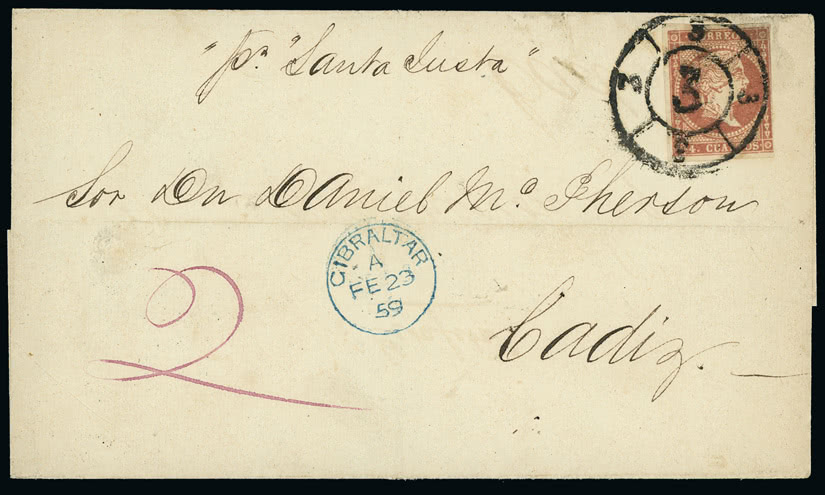 "pr. "Santa Justa"
CORREOS
3
3
3
3
3
4. CUARTOS
Sor Dn Daniel Mc. Pherson
GIBRALTAR
A
FE 23
59
2
Cadiz.